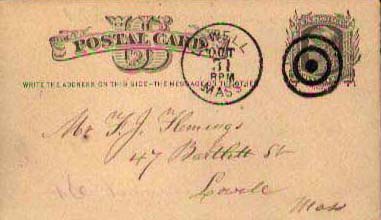 U S
POSTAL CARD
LOWELL
OCT
31
8 PM
MASS.
WRITE THE ADDRESS ON THIS SIDE - THE MESSAGE ON THE OTHER
Mr. F. J. Flemings
47 Bartlett St
Lowell
Mass